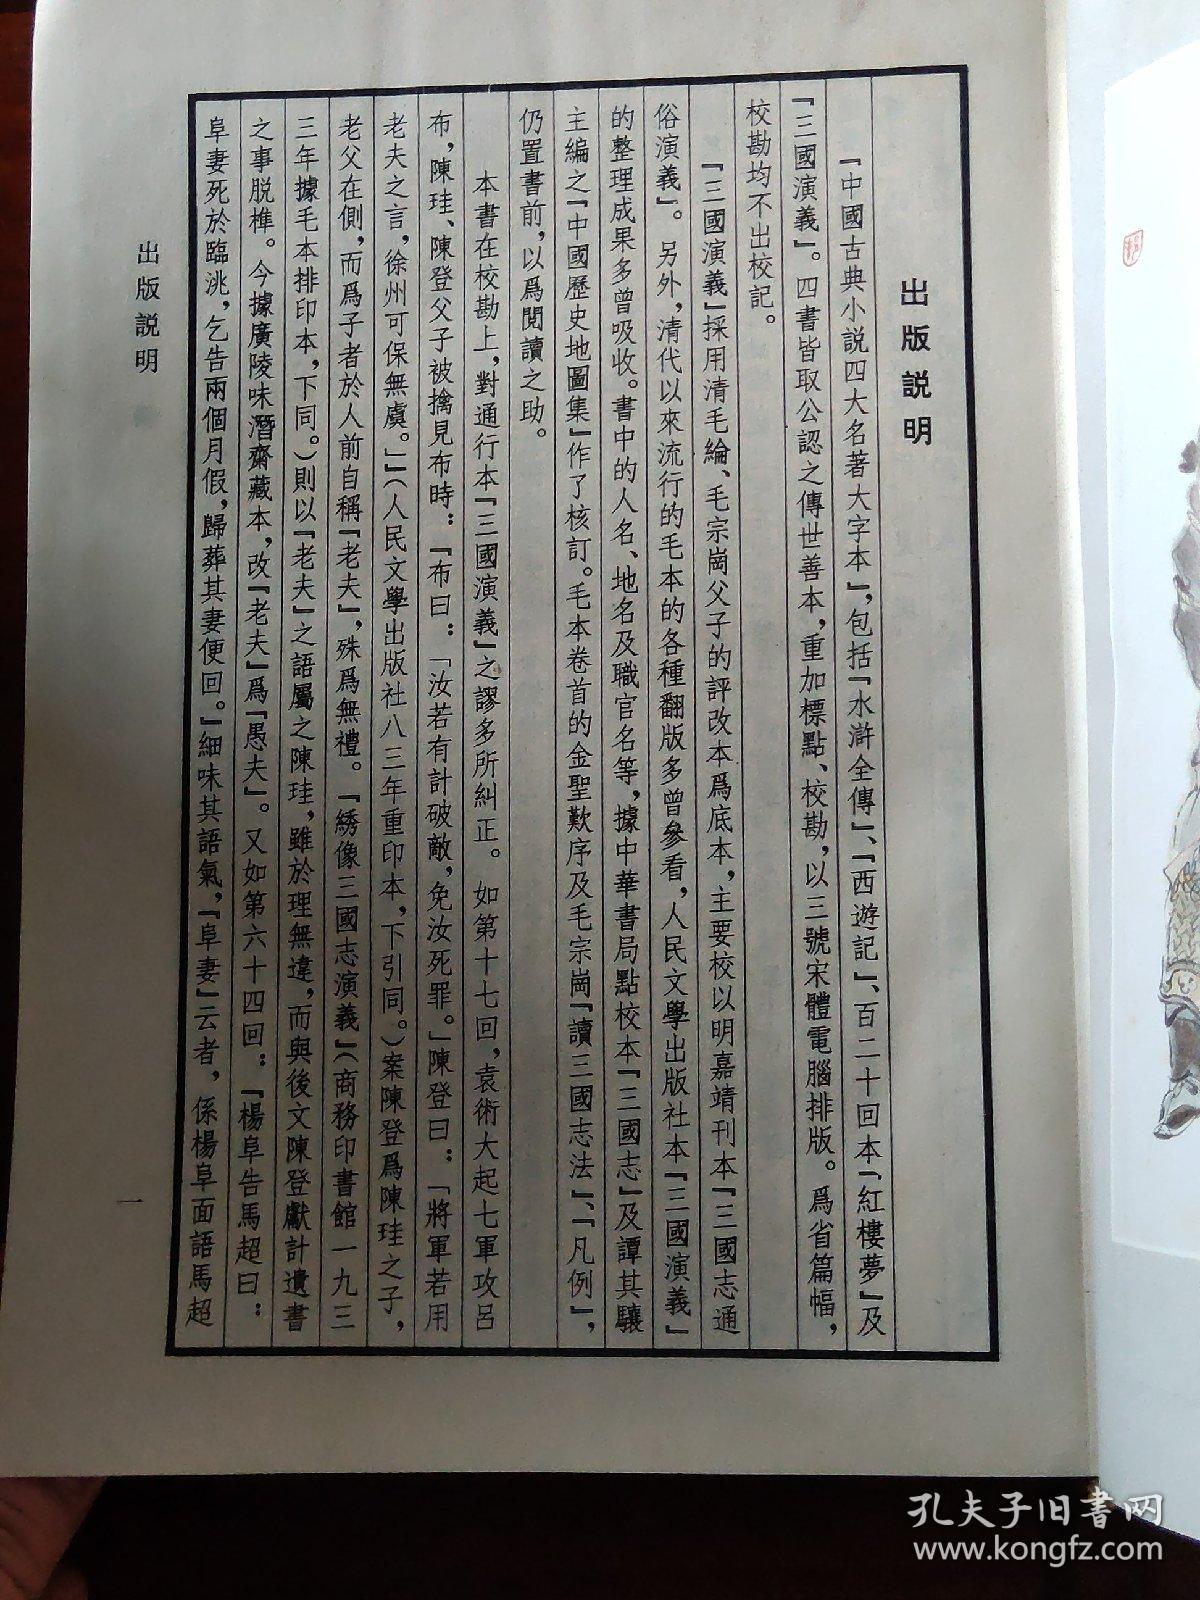 出版説明
『中國古典小説四大名著大字本』，包括『水滸全傳』、『西遊記』、百二十回本『紅樓夢』及
『三國演義』。四書皆取公認之傳世善本，重加標點、校勘，以三號宋體電腦排版。爲省篇幅，
校勘均不出校記。
『三國演義』採用清毛綸、毛宗崗父子的評改本爲底本，主要校以明嘉靖刊本『三國志通
俗演義』。另外，清代以來流行的毛本的各種翻版多曾參看，人民文學出版社本『三國演義』
的整理成果多曾吸收。書中的人名、地名及職官名等，據中華書局點校本『三國志』及譚其驤
主編之『中國歷史地圖集』作了核訂。毛本卷首的金聖歎序及毛宗崗『讀三國志法』、『凡例』，
仍置書前，以爲閱讀之助。
本書在校勘上，對通行本『三國演義』之謬多所糾正。如第十七回，袁術大起七軍攻呂
布，陳珪、陳登父子被擒見布時：『布曰：「汝若有計破敵，免汝死罪。」陳登曰：「將軍若用
老夫之言，徐州可保無虞。」』（人民文學出版社八三年重印本，下引同。）案陳登爲陳珪之子，
老父在側，而爲子者於人前自稱『老夫』，殊爲無禮。『綉像三國志演義』（商務印書館一九三
三年據毛本排印本，下同。）則以『老夫』之語屬之陳珪，雖於理無違，而與後文陳登獻計遺書
之事脱榫。今據廣陵味潛齋藏本，改『老夫』爲『愚夫』。又如第六十四回：『楊阜告馬超曰：
阜妻死於臨洮，乞告兩個月假，歸葬其妻便回。』細味其語氣，『阜妻』云者，係楊阜面語馬超
出版説明
一
孔夫子旧書网
www.kongfz.com